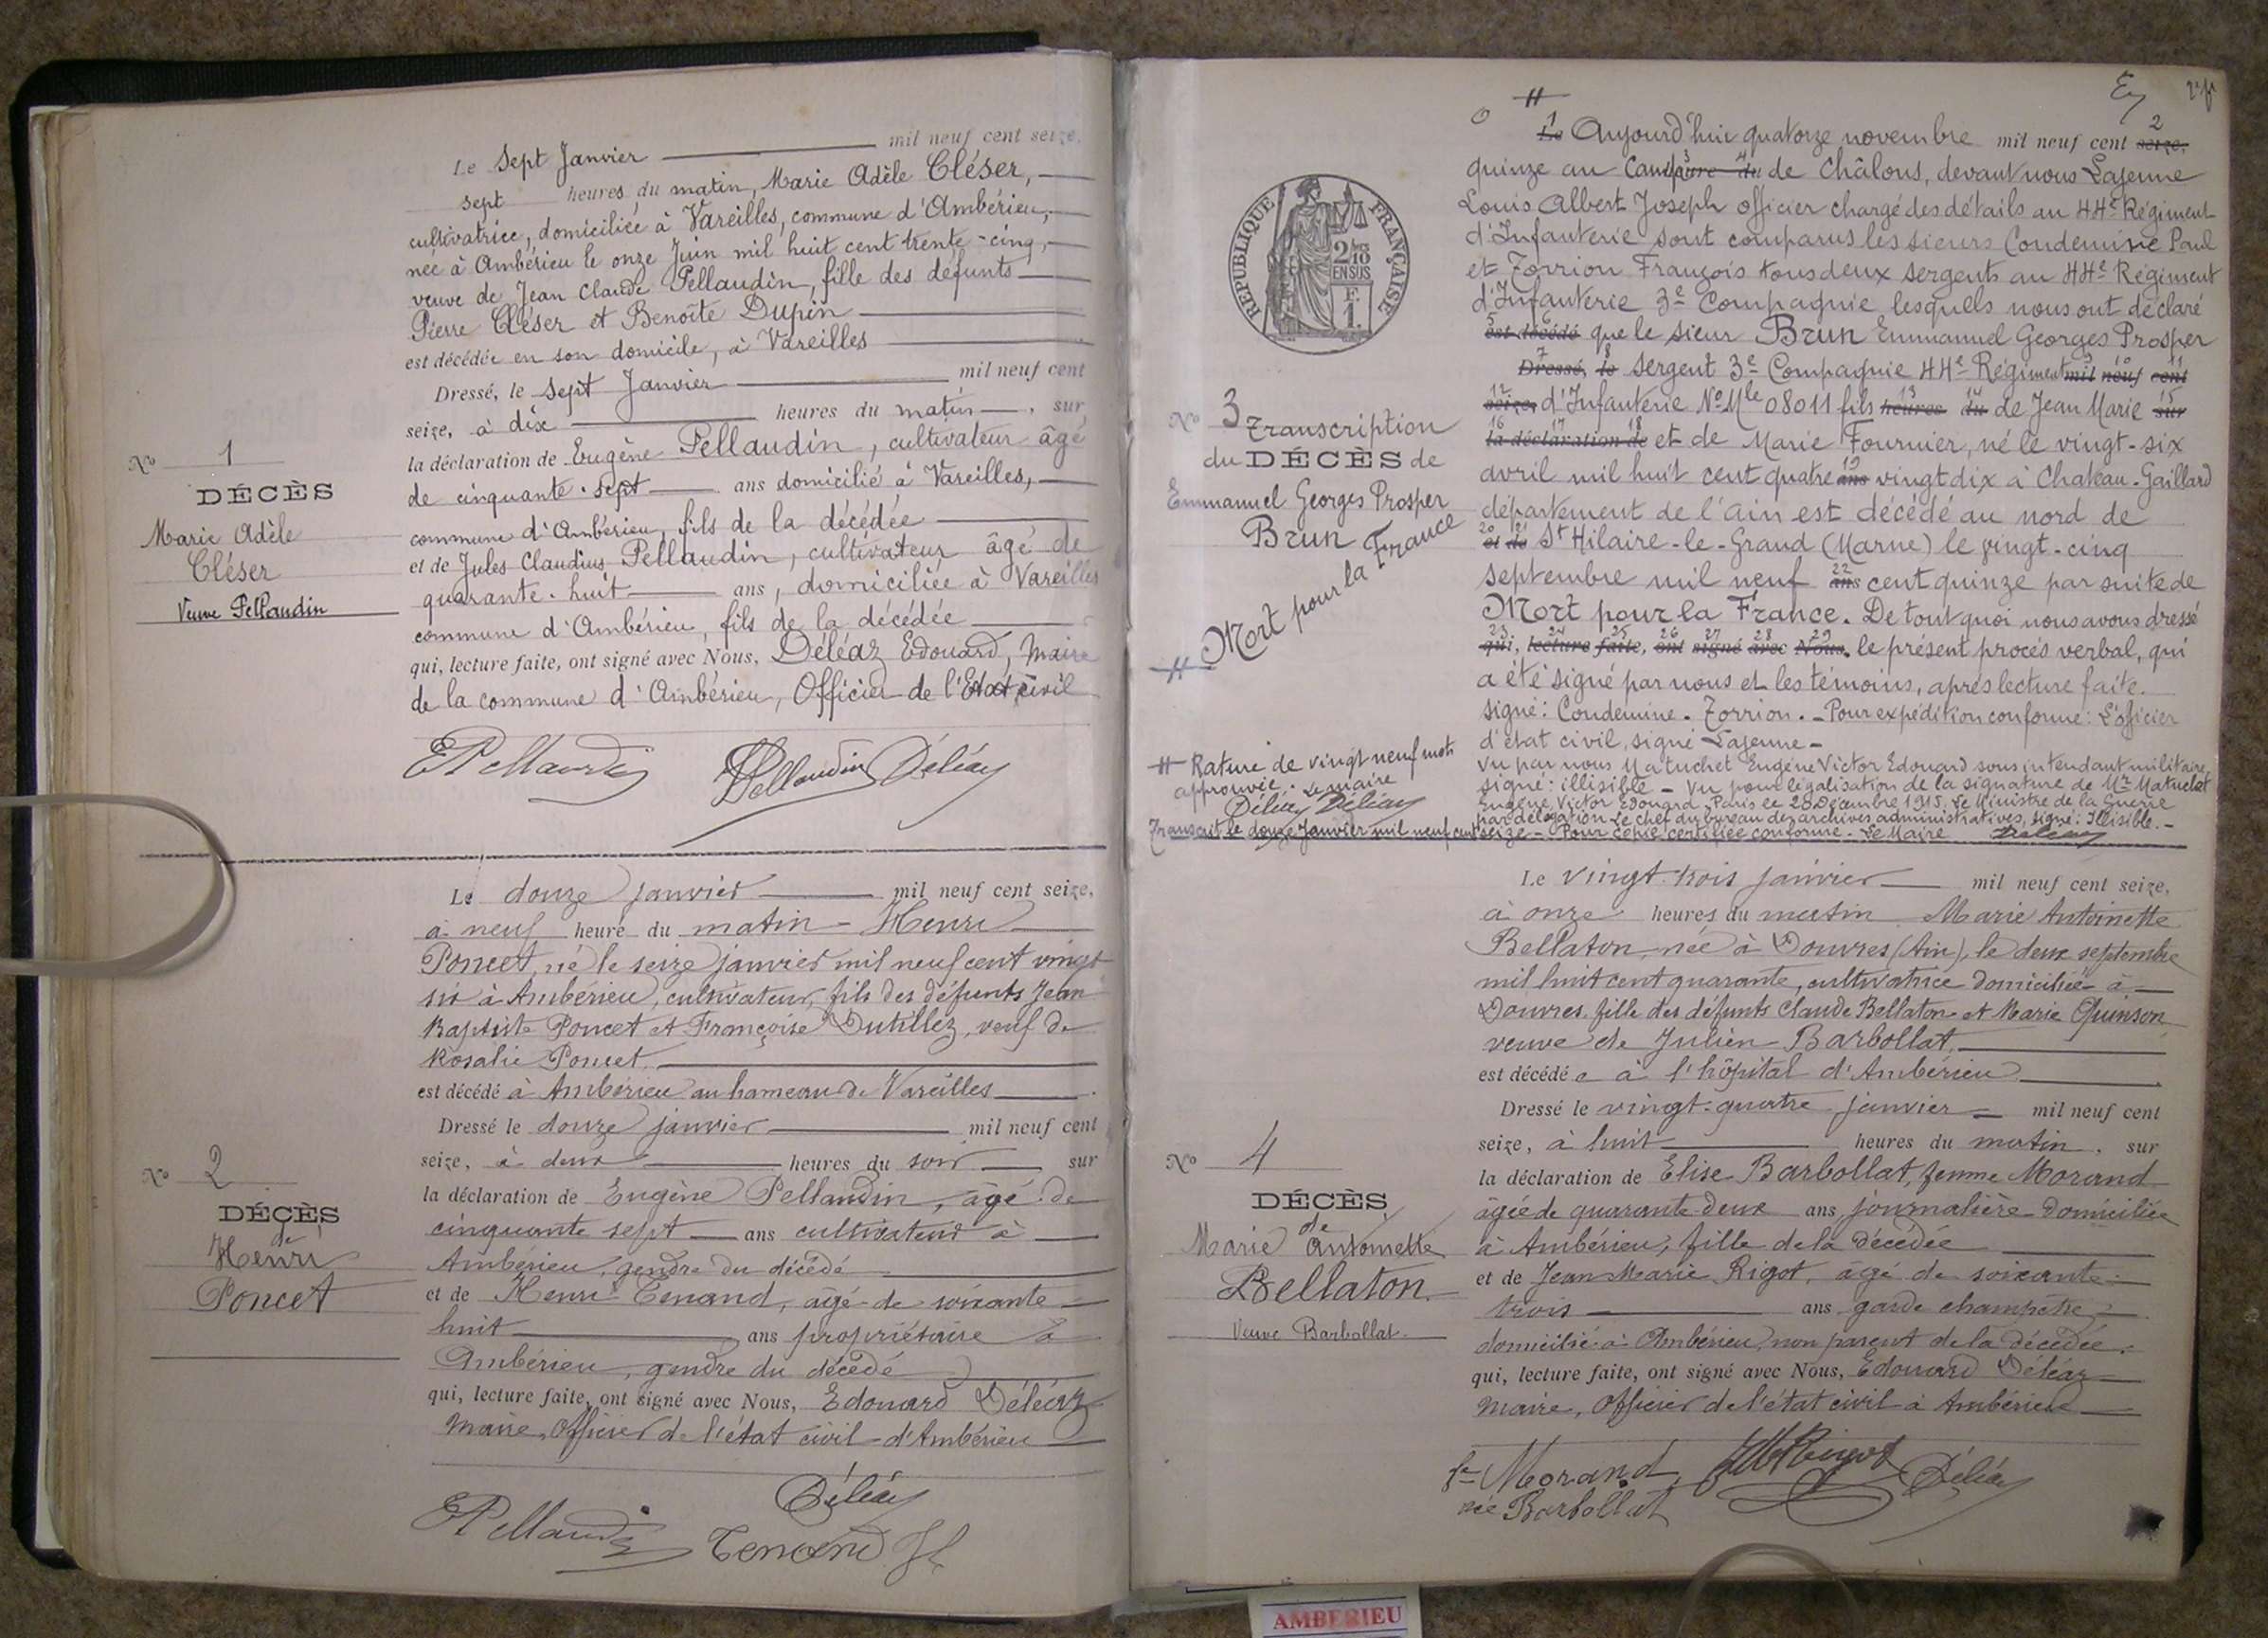 Le Sept Janvier mil neuf cent seize,
sept heures du matin, Marie Adèle Cléser,
cultivatrice, domiciliée à Vareilles, commune d'Ambérieu,
née à Ambérieu le onze Juin mil huit cent trente-cinq,
veuve de Jean Claude Pellaudin, fille des défunts
Pierre Cléser et Benoîte Dupin
est décédée en son domicile, à Vareilles
Dressé, le sept Janvier mil neuf cent
seize, à dix heures du matin, sur
la déclaration de Eugène Pellaudin, cultivateur âgé
de cinquante-sept ans domicilié à Vareilles,
commune d'Ambérieu, fils de la décédée
et de Jules Claudius Pellaudin, cultivateur âgé de
quarante-huit ans, domiciliée à Vareilles
commune d'Ambérieu, fils de la décédée
qui, lecture faite, ont signé avec Nous, Déléaz Edouard, Maire
de la commune d'Ambérieu, Officier de l'Etat civil
EPellaudin Pellaudin Déléaz
No 1
DÉCÈS
Marie Adèle
Cléser
Veuve Pellaudin
Le douze janvier mil neuf cent seize,
à neuf heure du matin - Henri
Poncet, né le seize janvier mil neuf cent vingt
six à Ambérieu, cultivateur, fils des défunts Jean
Baptiste Poncet et Françoise Dutillez, veuf de
Rosalie Poncet.
est décédé à Ambérieu au hameau de Vareilles
Dressé le douze janvier mil neuf cent
seize, à deux heures du soir sur
la déclaration de Eugène Pellaudin, âgé de
cinquante sept ans cultivateur à
Ambérieu, gendre du décédé
et de Henri Tenand, âgé de soixante
huit ans propriétaire à
Ambérieu, gendre du décédé
qui, lecture faite, ont signé avec Nous, Edouard Déléaz
Maire, Officier de l'état civil d'Ambérieu
Déléaz
EPellaudin Tenand
No 2
DÉCÈS
de
Henri
Poncet
1 2
Le Aujourd'hui quatorze novembre mil neuf cent seize,
quinze au Camp de Châlons, devant nous Lajenne
Louis Albert Joseph officier chargé des détails au 44e Régiment
d'Infanterie sont comparus les sieurs Condemine Paul
et Zorrion François tous deux sergents au 44e Régiment
d'Infanterie 3e Compagnie lesquels nous ont déclaré
5 6
est décédé que le sieur Brun Emmanuel Georges Prosper
7 8 9 10 11
Dressé, le sergent 3e Compagnie 44e Régiment mil neuf cent
12 13 14 15
seize, d'Infanterie No Mle 08011 fils heures du de Jean Marie sur
16 17 18
la déclaration de et de Marie Fournier, né le vingt-six
19
avril mil huit cent quatre ans vingt dix à Chateau-Gaillard
département de l'ain est décédé au nord de
20 21
et de St Hilaire-le-Grand (Marne) le vingt-cinq
22
septembre mil neuf ans cent quinze par suite de
Mort pour la France. De tout quoi nous avons dressé
23 24 25 26 27 28 29
qui, lecture faite, ont signé avec Nous, le présent procès verbal, qui
a été signé par nous et les témoins, après lecture faite.
signé: Condemine. Zorrion. - Pour expédition conforme: L'officier
d'état civil, signé Lajenne -
Vu par nous Matuchet Eugène Victor Edouard sous intendant militaire,
signé: illisible - Vu pour légalisation de la signature de Mr Matuchet
Eugène Victor Edouard, Paris le 28 Décembre 1915. Le Ministre de la Guerre
par délégation Le chef du bureau des archives administratives, signé: Illisible. -
Transcrit le douze Janvier mil neuf cent seize - Pour copie certifiée conforme. Le Maire Déléaz
RÉPUBLIQUE FRANÇAISE
2/10 EN SUS
F. 1.
No 3 Transcription
du DÉCÈS de
Emmanuel Georges Prosper
Brun
Mort pour la France
Rature de vingt neuf mots
approuvée. Le maire
Déléaz Déléaz
Le vingt-trois janvier mil neuf cent seize,
à onze heures du matin Marie Antoinette
Bellaton, née à Douvres (Ain), le deux septembre
mil huit cent quarante, cultivatrice domiciliée à
Douvres fille des défunts Claude Bellaton et Marie Quinson
veuve de Julien Barbollat,
est décédée à l'hôpital d'Ambérieu
Dressé le vingt-quatre janvier mil neuf cent
seize, à huit heures du matin, sur
la déclaration de Elise Barbollat, femme Morand
âgée de quarante-deux ans, journalière domiciliée
à Ambérieu, fille de la décédée
et de Jean Marie Rigot, âgé de soixante
trois ans garde champêtre
domicilié à Ambérieu, non parent de la décédée.
qui, lecture faite, ont signé avec Nous, Edouard Déléaz
Maire, Officier de l'état civil à Ambérieu
fe Morand Déléaz
née Barbollat
No 4
DÉCÈS
de
Marie Antoinette
Bellaton
Veuve Barbollat.
AMBERIEU